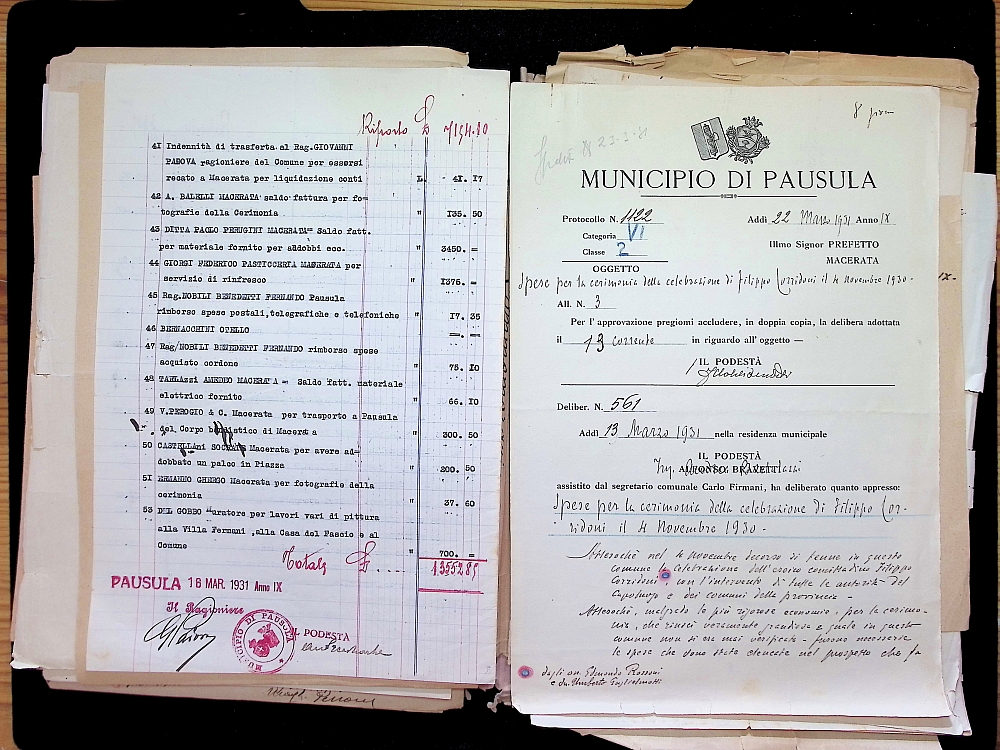 Riporto £ 7194.10
41 Indennità di trasferta al Rag.GIOVANNI
PADOVA ragioniere del Comune per essersi
recato a Macerata per liquidazione conti L. 41. 17
42 A. BALELLI MACERATA saldo fattura per fo=
tografie della Cerimonia " 135. 50
43 DITTA PAOLO PERUGINI MACERATA= Saldo fatt.
per materiale fornito per addobbi ecc. " 3450. =
44 GIORGI FEDERICO PASTICCERIA MACERATA per
servizio di rinfresco " 1375. =
45 Rag.NOBILI BENEDETTI FERNANDO Pausula
rimborso spese postali,telegrafiche e telefoniche " 17. 35
46 BERNACCHINI OTELLO " =. =
47 Rag/NOBILI BENEDETTI FERNANDO rimborso spese
acquisto cordone " 75. 10
48 TABLAZZI AMEDEO MACERATA = Saldo fatt. materiale
elettrico fornito " 66. 10
49 V.PEROGIO & C. Macerata per trasporto a Pausula
del Corpo bandistico di Macerata " 300. 50
50 CASTELLAni Macerata per avere ad=
dobbato un palco in Piazza " 200. 50
51 ERMANNO GHERGO Macerata per fotografie della
cerimonia " 37. 60
53 DEL GOBBO uratore per lavori vari di pittura
alla Villa Fermani ,alla Casa del Fascio e al
Comune " 700. =
Totale £
PAUSULA 18 MAR. 1931 Anno IX
Il Ragioniere
MUNICIPIO DI PAUSULA
IL PODESTÀ
8 giu
23-3-31
MUNICIPIO DI PAUSULA
Protocollo N. 1122 Addì 22 Marzo 1931 Anno IX
Categoria VI
Classe 2
Illmo Signor PREFETTO
MACERATA
OGGETTO
Spese per la cerimonia della celebrazione di Filippo Corridoni il 4 novembre 1930- IX-
All. N. 3
Per l'approvazione pregiomi accludere, in doppia copia, la delibera adottata
il 13 corrente in riguardo all'oggetto —
IL PODESTÀ
Deliber. N. 561
Addì 13 Marzo 1931 nella residenza municipale
IL PODESTÀ
ALFONSO BRAVETTI
assistito dal segretario comunale Carlo Firmani, ha deliberato quanto appresso:
Spese per la cerimonia della celebrazione di Filippo Cor-
ridoni il 4 Novembre 1930-
Attesochè nel 4 novembre decorso si tenne in questo
comune la celebrazione dell'eroico concittadino Filippo
Corridoni, con l'intervento di tutte le autorità del
Capoluogo e dei comuni della provincia-
Attesochè, malgrado la più rigorosa economia, per la cerimo-
nia, che riuscì veramente grandiosa e quale in questo
comune non si era mai verificata - furono necessarie
le spese che sono state elencate nel prospetto che fa
dagli on. Edmondo Rossoni
e on. Umberto Guglielmotti